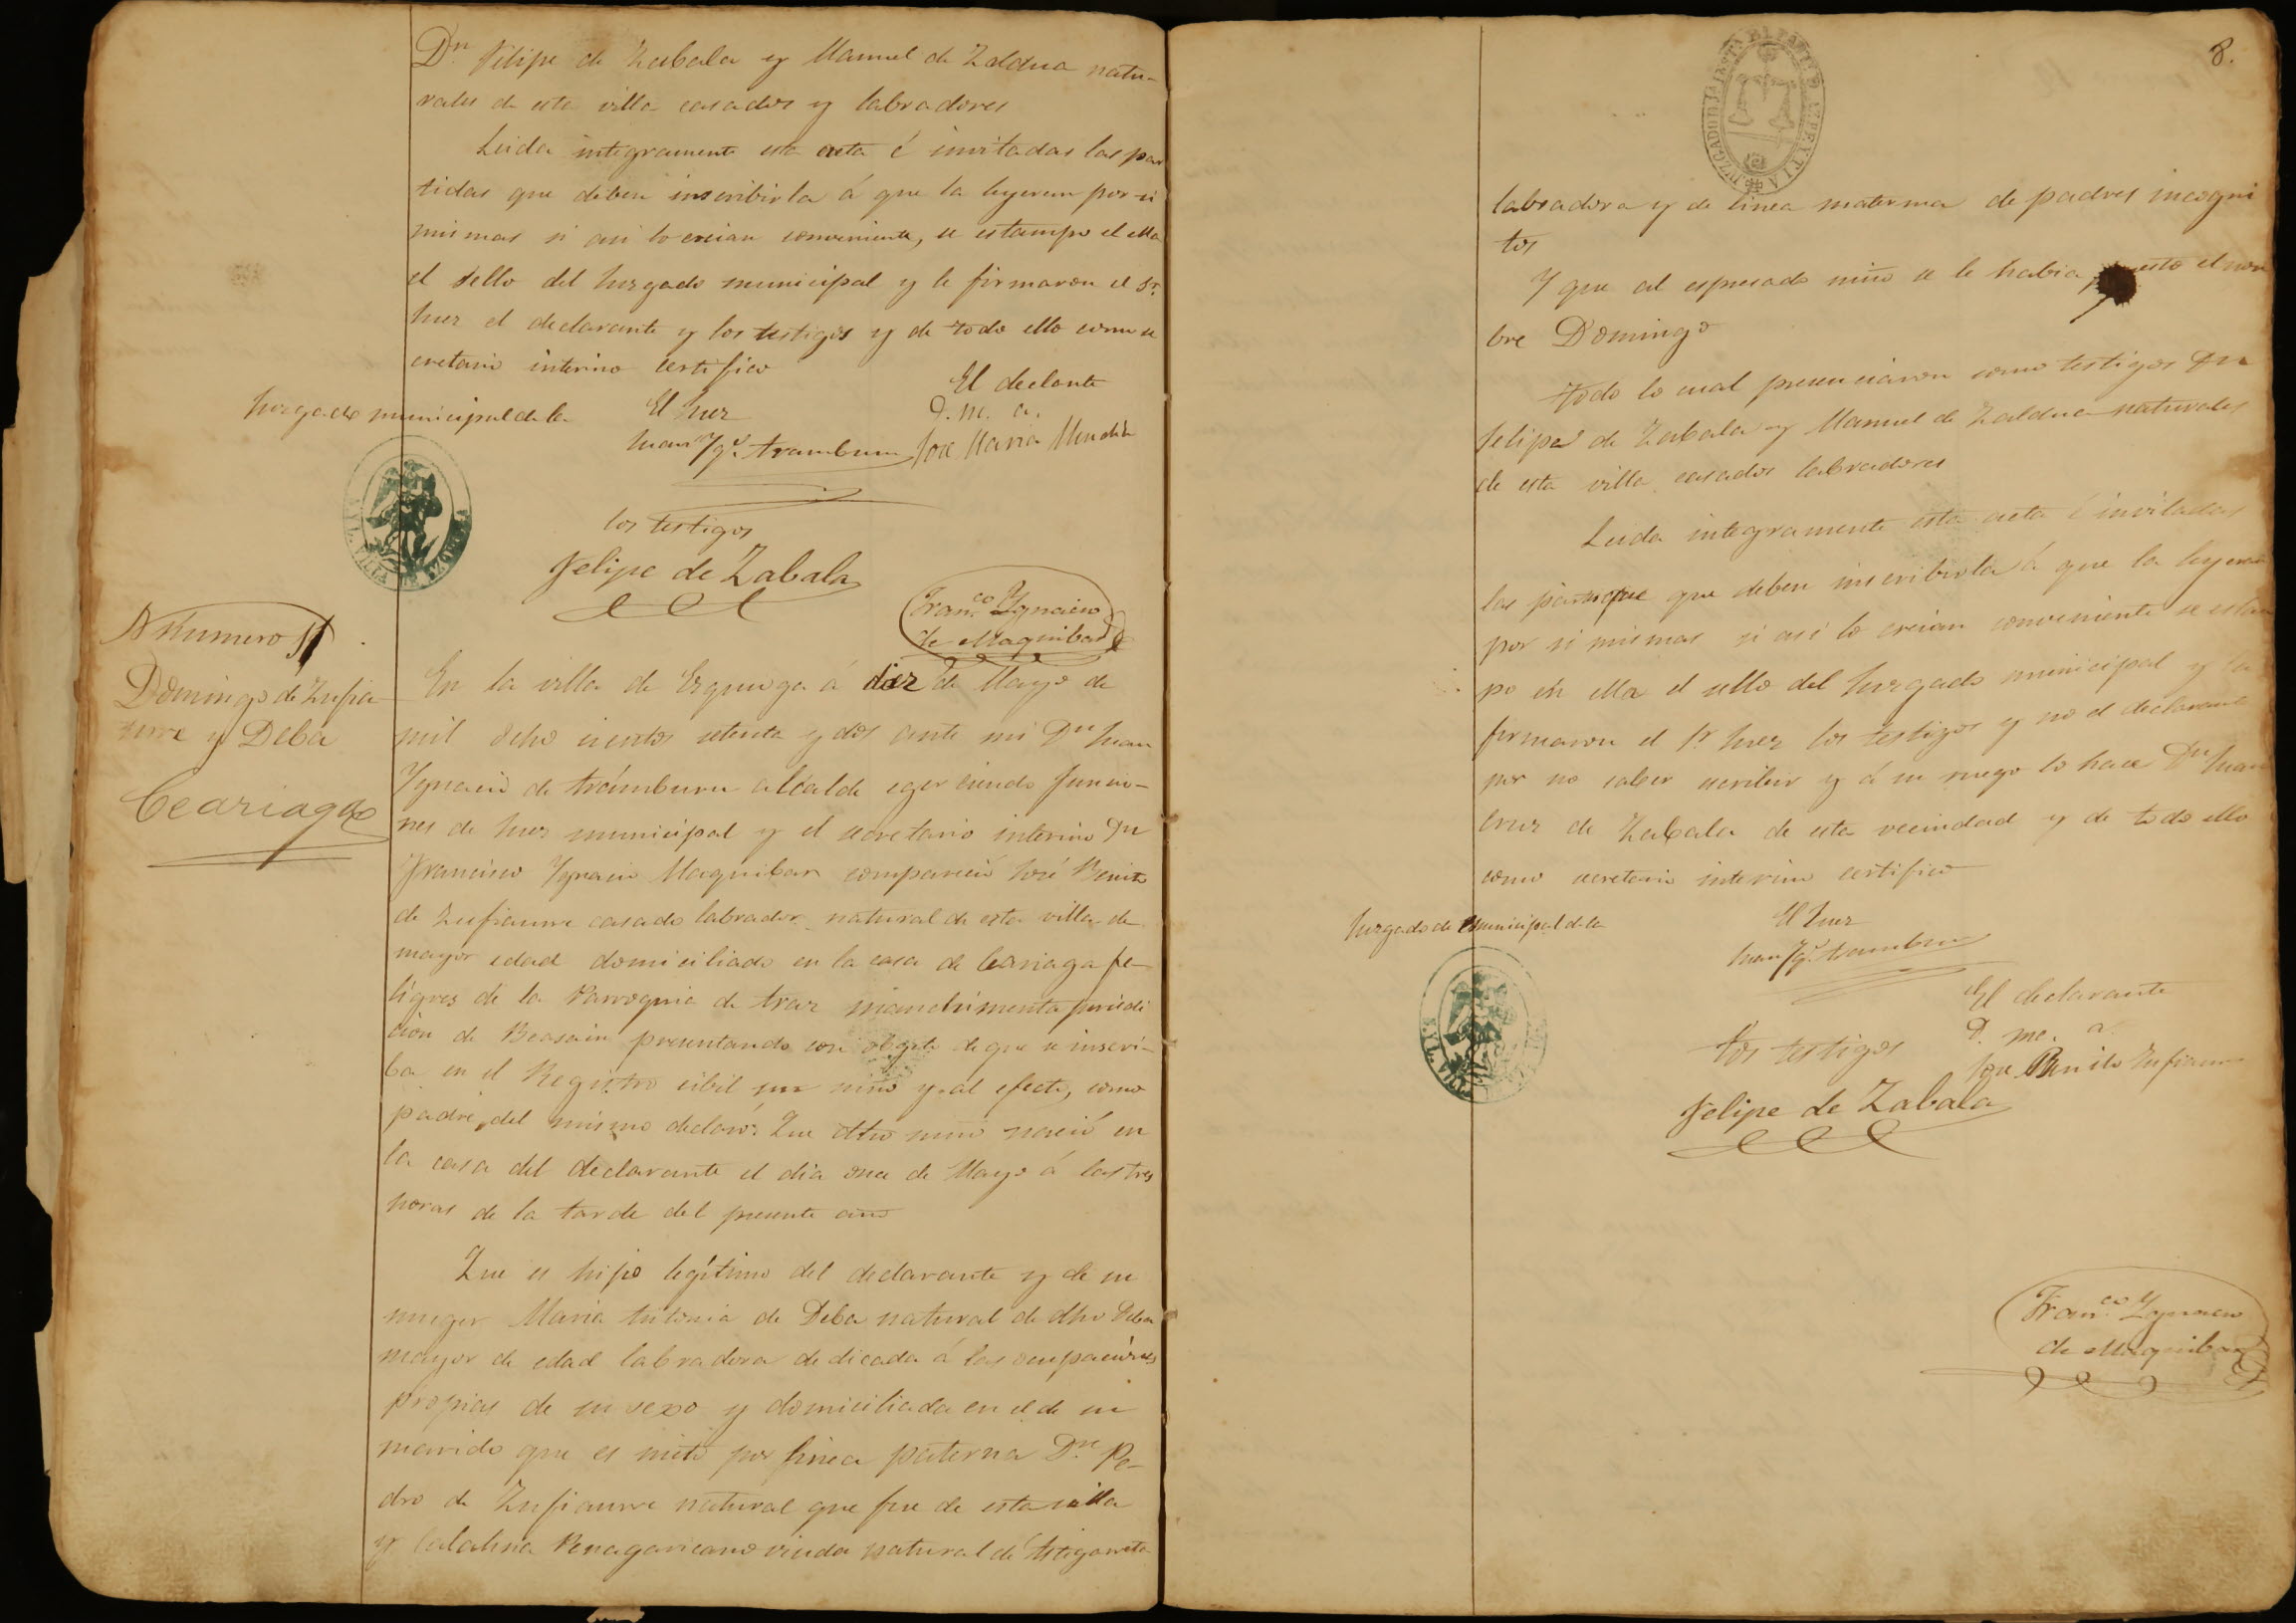 Dn Felipe de Zabala y Manuel de Zaldua natu-
rales de esta villa casados y labradores
Leida integramente esta acta é invitadas las par
tidas que deben inscribirla á que la leyeran por si
mismas si asi lo creian conveniente, se estampo el ella
el sello del Juzgado municipal y le firmaron el Sr.
Juez el declarante y los testigos y de todo ello como se
cretario interino certifico
Juzgado municipal de la
El Juez
Juan Ygo. Iramburu
El declante
J. M. a.
Jose Maria Mendia
los testigos
Felipe de Zabala
Fran.co Ygnacio
de Maquibar
Numero
Domingo de Zufia
urre y Deba
Ceariaga
En la villa de Ezquioga á diez de Mayo de
mil ocho cientos setenta y dos ante mi Dn Juan
Ygnacio de Irámburu alcalde egerciendo funcio-
nes de Juez municipal y el secretario interino Dn
Francisco Ygnacio Maquibar compareció José Benito
de Zufiaurre casado labrador natural de esta villa de
mayor edad domiciliado en la casa de Ceariaga fe-
ligres de la Parroquia de
cion de Beasain presentando con obgeto de que se inscri-
ba en el Registro cibil un niño y al efecto, como
padre del mismo declaró: Que dho niño nació en
la casa del declarante el dia once de Mayo á las tres
horas de la tarde del presente año
Que es hijo legítimo del declarante y de su
muger Maria Antonia de Deba natural de dho Deba
mayor de edad labradora dedicada á las ocupaciones
propias de su sexo y domiciliada en el de su
marido que es nieto por linea paterna Dn Pe-
dro de Zufiaurre natural que fue de esta villa
y Catalina Penagaricano viuda natural de Astigarreta
8.
labradora y de linea materma de padres incogni
tos
Y que al espresado niño se le habia puesto el nom
bre Domingo
Todo lo cual presenciaron como testigos Dn
Felipe de Zabala y Manuel de Zaldua naturales
de esta villa casados labradores
Leida integramente esta acta é invitadas
las que deben inscribirla á que la leyeran
por si mismas si asi lo creian conveniente se estam
po en ella el sello del Juzgado municipal y la
firmaron el Sr Juez los testigos y no el declarante
por no saber escribir y á su ruego lo hace Dn Juan
Cruz de Zabala de esta vecindad y de todo ello
como secretario interino certifico
Juzgado de municipal de la
El Juez
Juan Ygo. Iramburu
El declarante
J. M. a.
Jose Benito Zufiaurre
Los testigos
Felipe de Zabala
Fran.co Ygnacio
de Maquibar